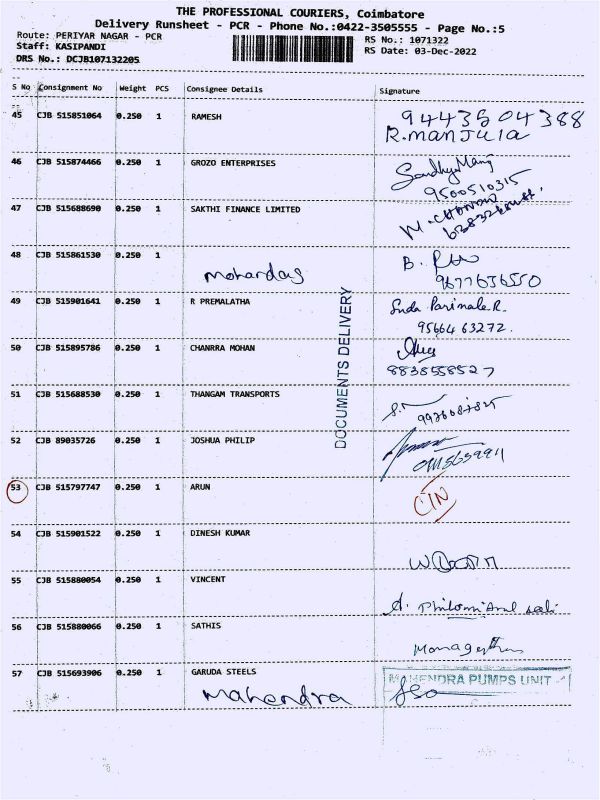 THE PROFESSIONAL COURIERS, Coimbatore
Delivery Runsheet - PCR - Phone No.:0422-3505555 - Page No.:5
Route: PERIYAR NAGAR - PCR
RS No.: 1071322
Staff: KASIPANDI
RS Date: 03-Dec-2022
DRS No.: DCJB107132205
S No Consignment No Weight PCS Consignee Details Signature
45 CJB 515851064 0.250 1 RAMESH 9443504388
R.manjula
46 CJB 515874466 0.250 1 GROZO ENTERPRISES
9500510315
47 CJB 515688690 0.250 1 SAKTHI FINANCE LIMITED
48 CJB 515861530 0.250 1 B.
mohandas 9677636550
49 CJB 515901641 0.250 1 R PREMALATHA Suda Parimala R.
95664 63272.
50 CJB 515895786 0.250 1 CHANRRA MOHAN
8838558527
DOCUMENTS DELIVERY
51 CJB 515688530 0.250 1 THANGAM TRANSPORTS
52 CJB 89035726 0.250 1 JOSHUA PHILIP
53 CJB 515797747 0.250 1 ARUN C/N
54 CJB 515901522 0.250 1 DINESH KUMAR
55 CJB 515880054 0.250 1 VINCENT
56 CJB 515880066 0.250 1 SATHIS
57 CJB 515693906 0.250 1 GARUDA STEELS MAHENDRA PUMPS UNIT
Mahendra